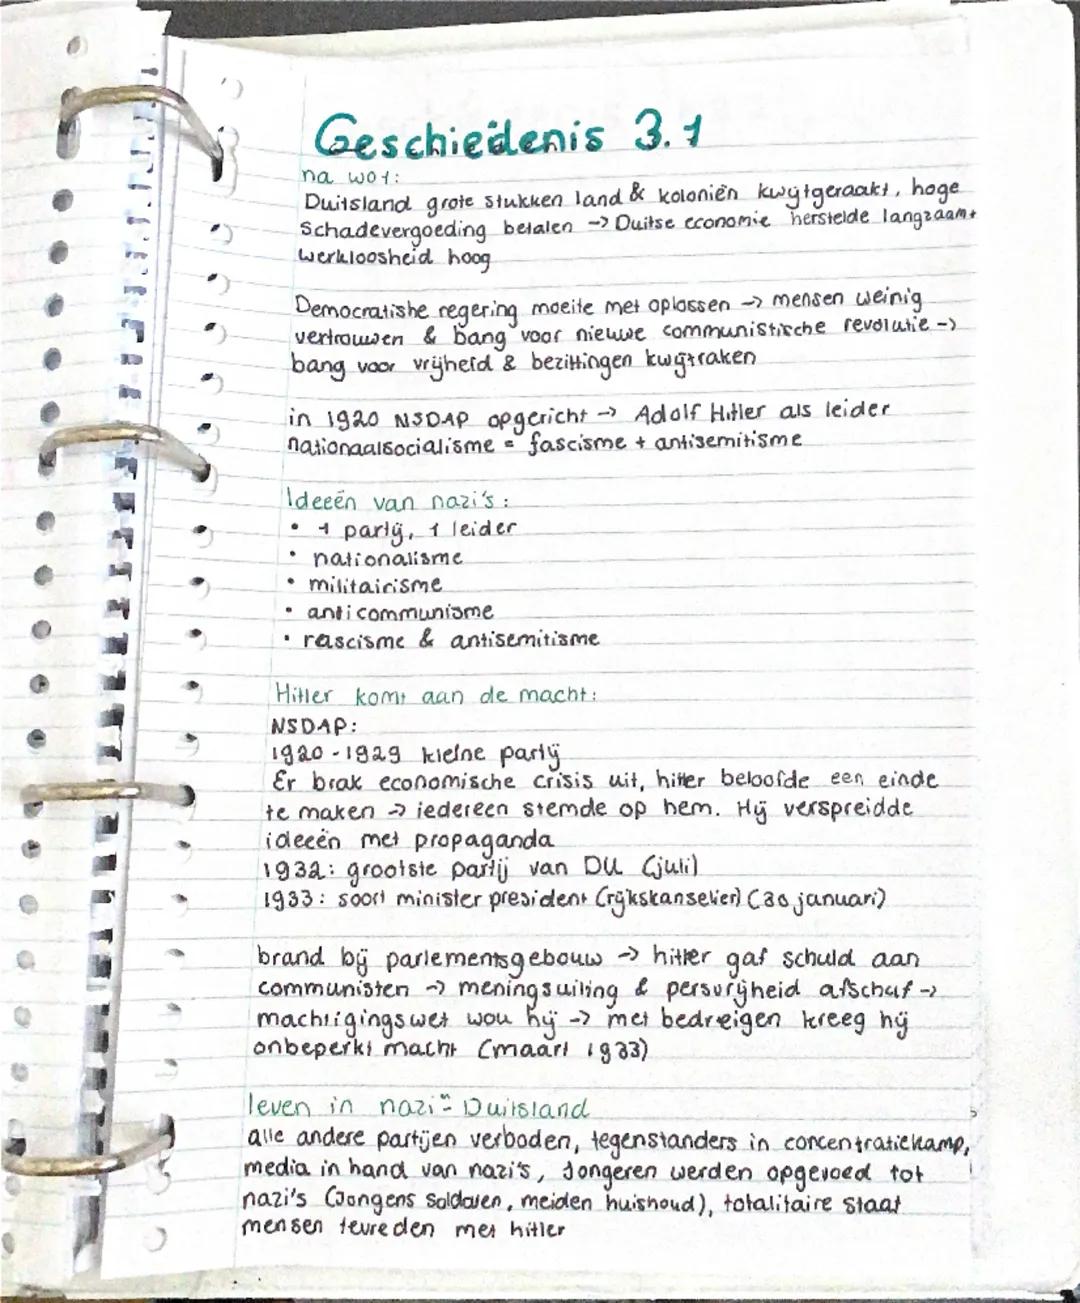 Geschiedenis 3.1
na wo1:
Duitsland grote stukken land & koloniën kwijtgeraakt, hoge
Schadevergoeding betalen -> Duitse economie herstelde langzaam +
werkloosheid hoog
Democratishe regering moeite met oplossen -> mensen weinig
vertrouwen & bang voor nieuwe communistische revolutie ->
bang voor vrijheid & bezittingen kwijtraken
in 1920 NSDAP opgericht -> Adolf Hitler als leider
nationaalsocialisme = fascisme + antisemitisme
Ideeën van nazi's:
• 1 partij, 1 leider
• nationalisme
• militairisme
• anticommunisme
• rascisme & antisemitisme
Hitler komt aan de macht:
NSDAP:
1920-1929 kleine partij
Er brak economische crisis uit, hitler beloofde een einde
te maken -> iedereen stemde op hem. Hij verspreidde
ideeën met propaganda
1932: grootste partij van DU (juli)
1933: soort minister president (rijkskanselier) (30 januari)
brand bij parlementsgebouw -> hitler gaf schuld aan
communisten -> meningsuiting & persvrijheid afschaf ->
machtigingswet wou hij -> met bedreigen kreeg hij
onbeperkt macht (maart 1933)
leven in nazi-Duitsland
alle andere partijen verboden, tegenstanders in concentratiekamp,
media in hand van nazi's, Jongeren werden opgevoed tot
nazi's (Jongens soldaten, meiden huishoud), totalitaire staat
mensen tevreden met hitler